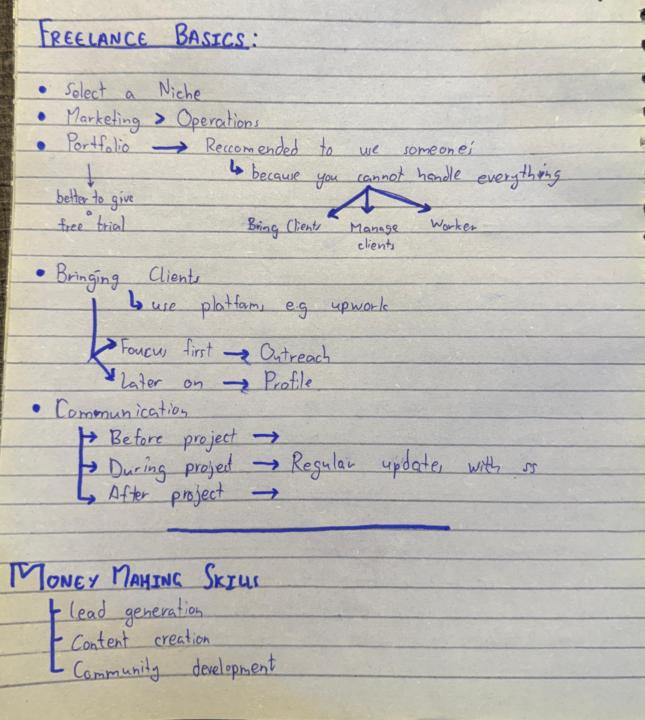 FREELANCE BASICS:
• Select a Niche
• Marketing > Operations
• Portfolio → Reccomended to we someones
↳ because you cannot handle everything
↓
better to give
free trial
Bring Clients
Manage
clients
Worker
• Bringing Clients
↳ use platfams e.g upwork
Foucus first → Outreach
Later on → Profile
• Communication
Before project →
During project → Regular updates with ss
After project →
MONEY MAKING SKILLS
Lead generation
Content creation
Community development